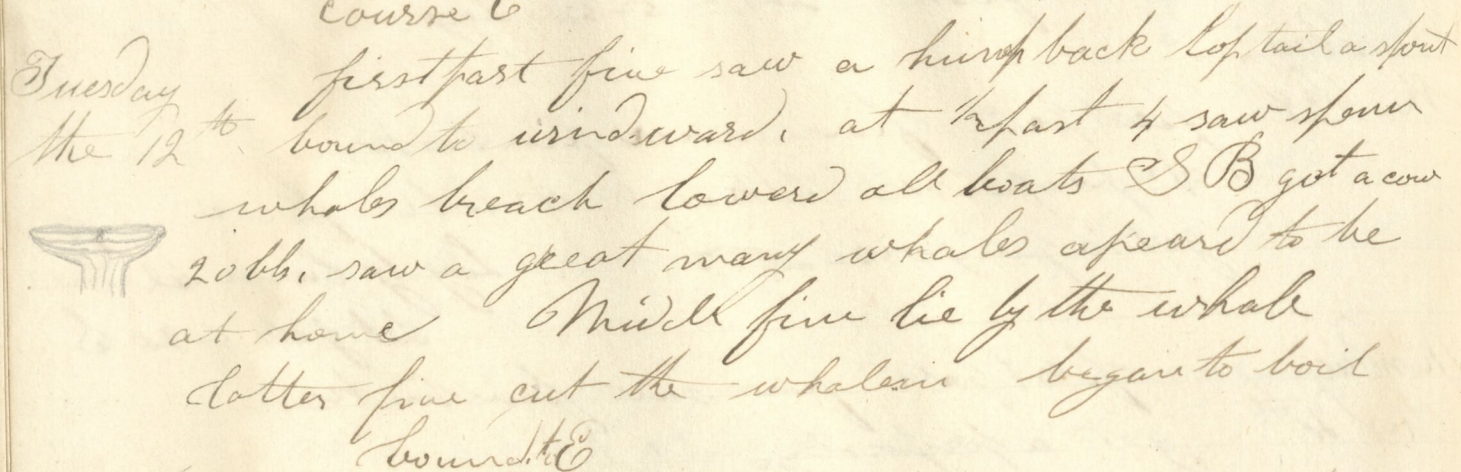 course E
Tuesday first part fine saw a hump back lop tail a spout
the 12th bound to windward. at ½ past 4 saw sperm
whales breach loward all boats S B got a cow
20 bbs. saw a great many whales apeard to be
at home Middl fine lie by the whale
latter fine cut the whale in began to boil
bound to E